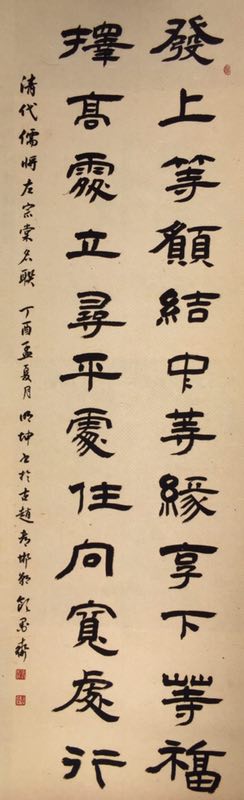 發上等願結中等緣享下等福
擇高處立尋平處住向寬處行
清代儒將左宗棠名聯 丁酉孟夏月 明坤书於古趙都邯鄲 墨齋